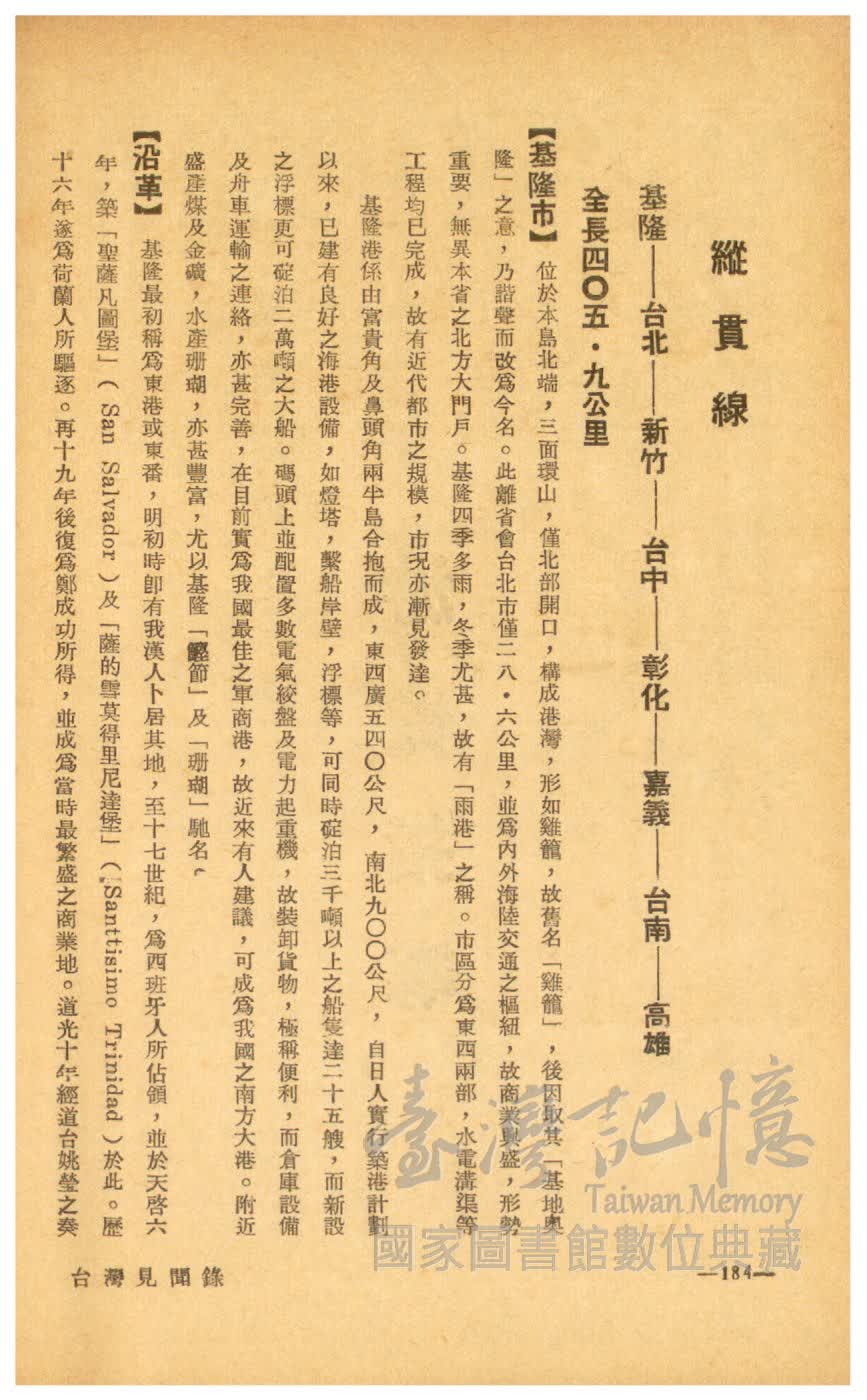 縱貫線
基隆——台北——新竹——台中——彰化——嘉義——台南——高雄
全長四〇五・九公里
【基隆市】　位於本島北端，三面環山，僅北部開口，構成港灣，形如雞籠，故舊名「雞籠」，後因取其「基地奧
隆」之意，乃諧聲而改爲今名。此離省會台北市僅二八・六公里，並爲內外海陸交通之樞紐，故商業興盛，形勢
重要，無異本省之北方大門戶。基隆四季多雨，冬季尤甚，故有「雨港」之稱。市區分爲東西兩部，水電溝渠等
工程均已完成，故有近代都市之規模，市況亦漸見發達。
基隆港係由富貴角及鼻頭角兩半島合抱而成，東西廣五四〇公尺，南北九〇〇公尺，自日人實行築港計劃
以來，已建有良好之海港設備，如燈塔，繫船岸壁，浮標等，可同時碇泊三千噸以上之船隻達二十五艘，而新設
之浮標更可碇泊二萬噸之大船。碼頭上並配置多數電氣絞盤及電力起重機，故裝卸貨物，極稱便利，而倉庫設備
及舟車運輸之連絡，亦甚完善，在目前實爲我國最佳之軍商港，故近來有人建議，可成爲我國之南方大港。附近
盛產煤及金礦，水產珊瑚，亦甚豐富，尤以基隆「鰹節」及「珊瑚」馳名。
【沿革】　基隆最初稱爲東港或東番，明初時卽有我漢人卜居其地，至十七世紀，爲西班牙人所佔領，並於天啓六
年，築「聖薩凡圖堡」（San Salvador）及「薩的雪莫得里尼達堡」（Santtisimo Trinidad）於此。歷
十六年遂爲荷蘭人所驅逐。再十九年後復爲鄭成功所得，並成爲當時最繁盛之商業地。道光十年經道台姚瑩之奏
台灣見聞錄
—184—
臺灣記憶
Taiwan Memory
國家圖書館數位典藏